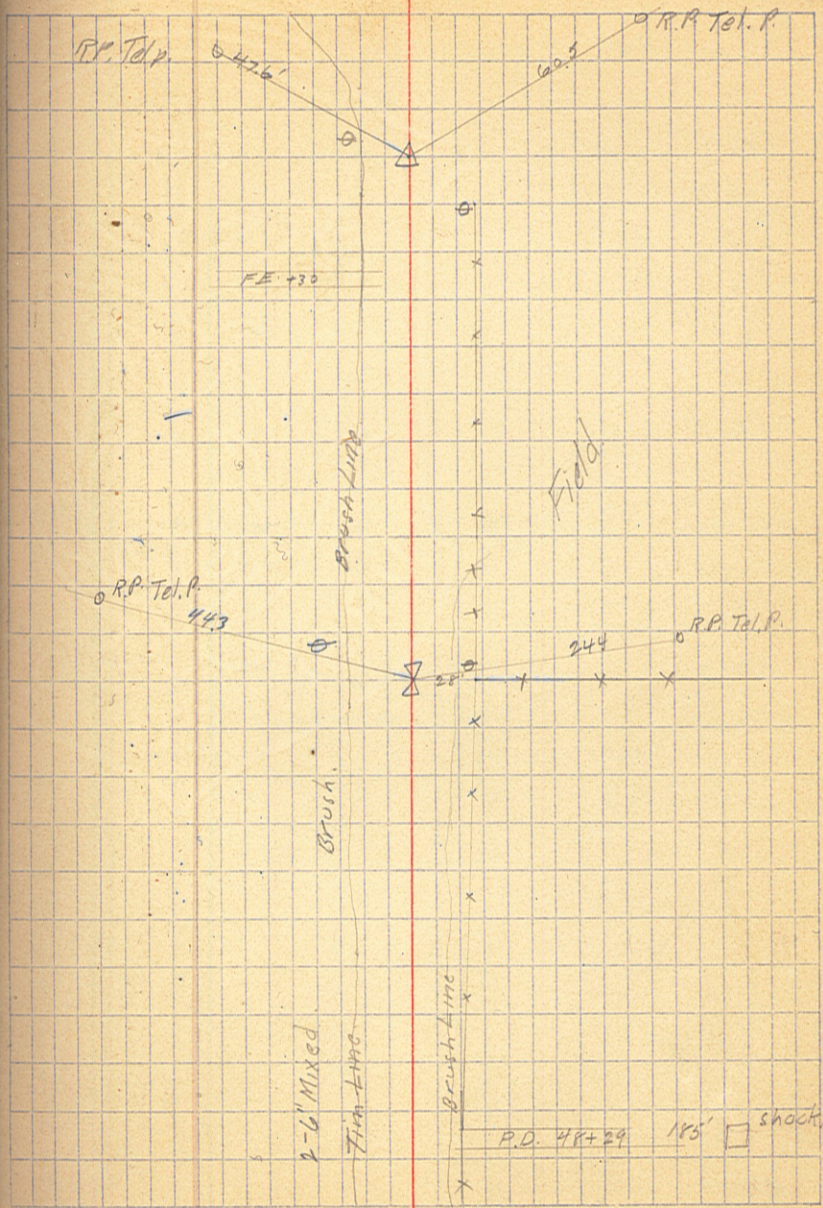 R.P. Tel.p.
47.6'
60.5
R.P. Tel. P.
F.E. +30
Brush Line
Field
R.P. Tel. P.
44.3
R.P. Tel. P.
244
28'
Brush.
2-6" Mixed.
Tim Line
Brush Line
P.D. 48+29 185' shack